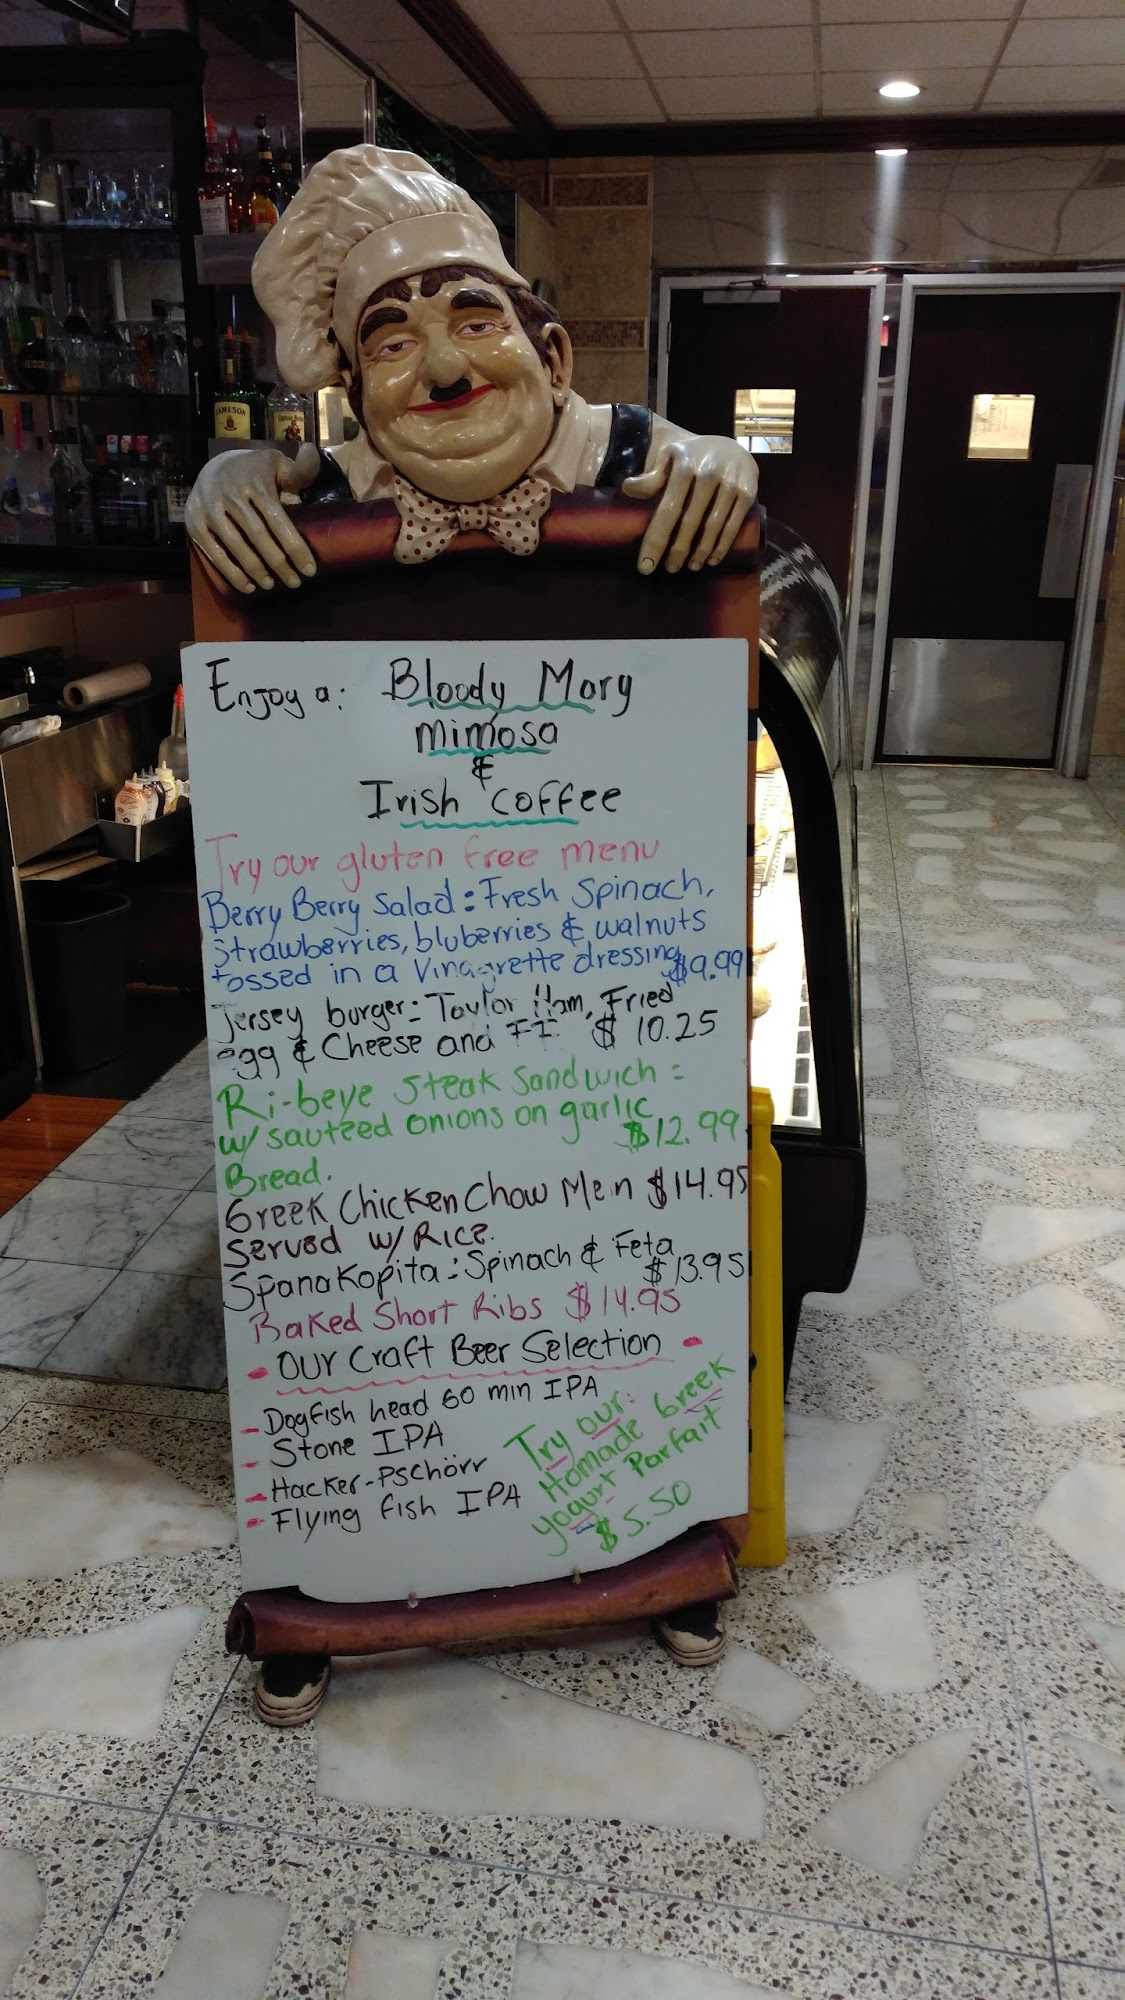 Enjoy a: Bloody Mary
mimosa
&
Irish coffee
Try our gluten free menu
Berry Berry Salad: Fresh Spinach,
strawberries, bluberries & walnuts
tossed in a Vinagrette dressing $9.99
Jersey burger: Taylor Ham, Fried
egg & Cheese and FF $ 10.25
Ri-beye steak sandwich:
w/ sauteed onions on garlic
$12.99
Bread.
Greek Chicken Chow Mein $14.95
Served w/ Rice.
Spanakopita: Spinach & Feta
$13.95
Baked Short Ribs $14.95
Our Craft Beer Selection
- Dogfish head 60 min IPA
- Stone IPA
- Hacker-Pschörr
- Flying fish IPA
Try our:
Homade Greek
yogurt Parfait
$5.50
JAMESON